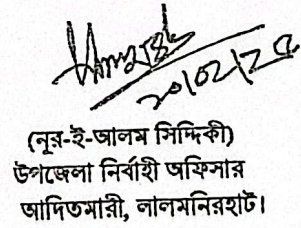 ২০/০২/২৫
(নূর-ই-আলম সিদ্দিকী)
উপজেলা নির্বাহী অফিসার
আদিতমারী, লালমনিরহাট।